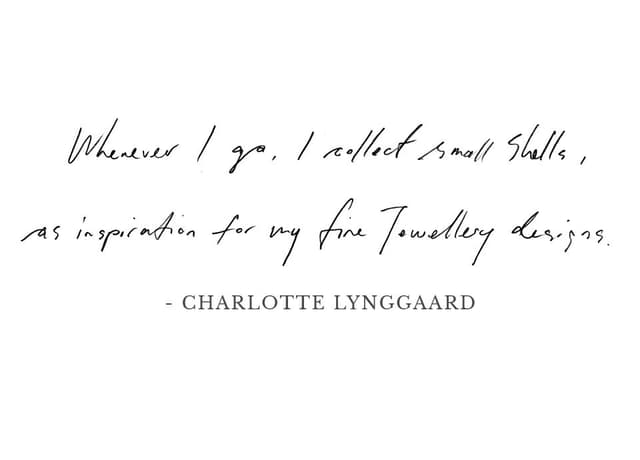 Whenever I go, I collect small Shells,
as inspiration for my fine Jewellery designs.
- CHARLOTTE LYNGGAARD